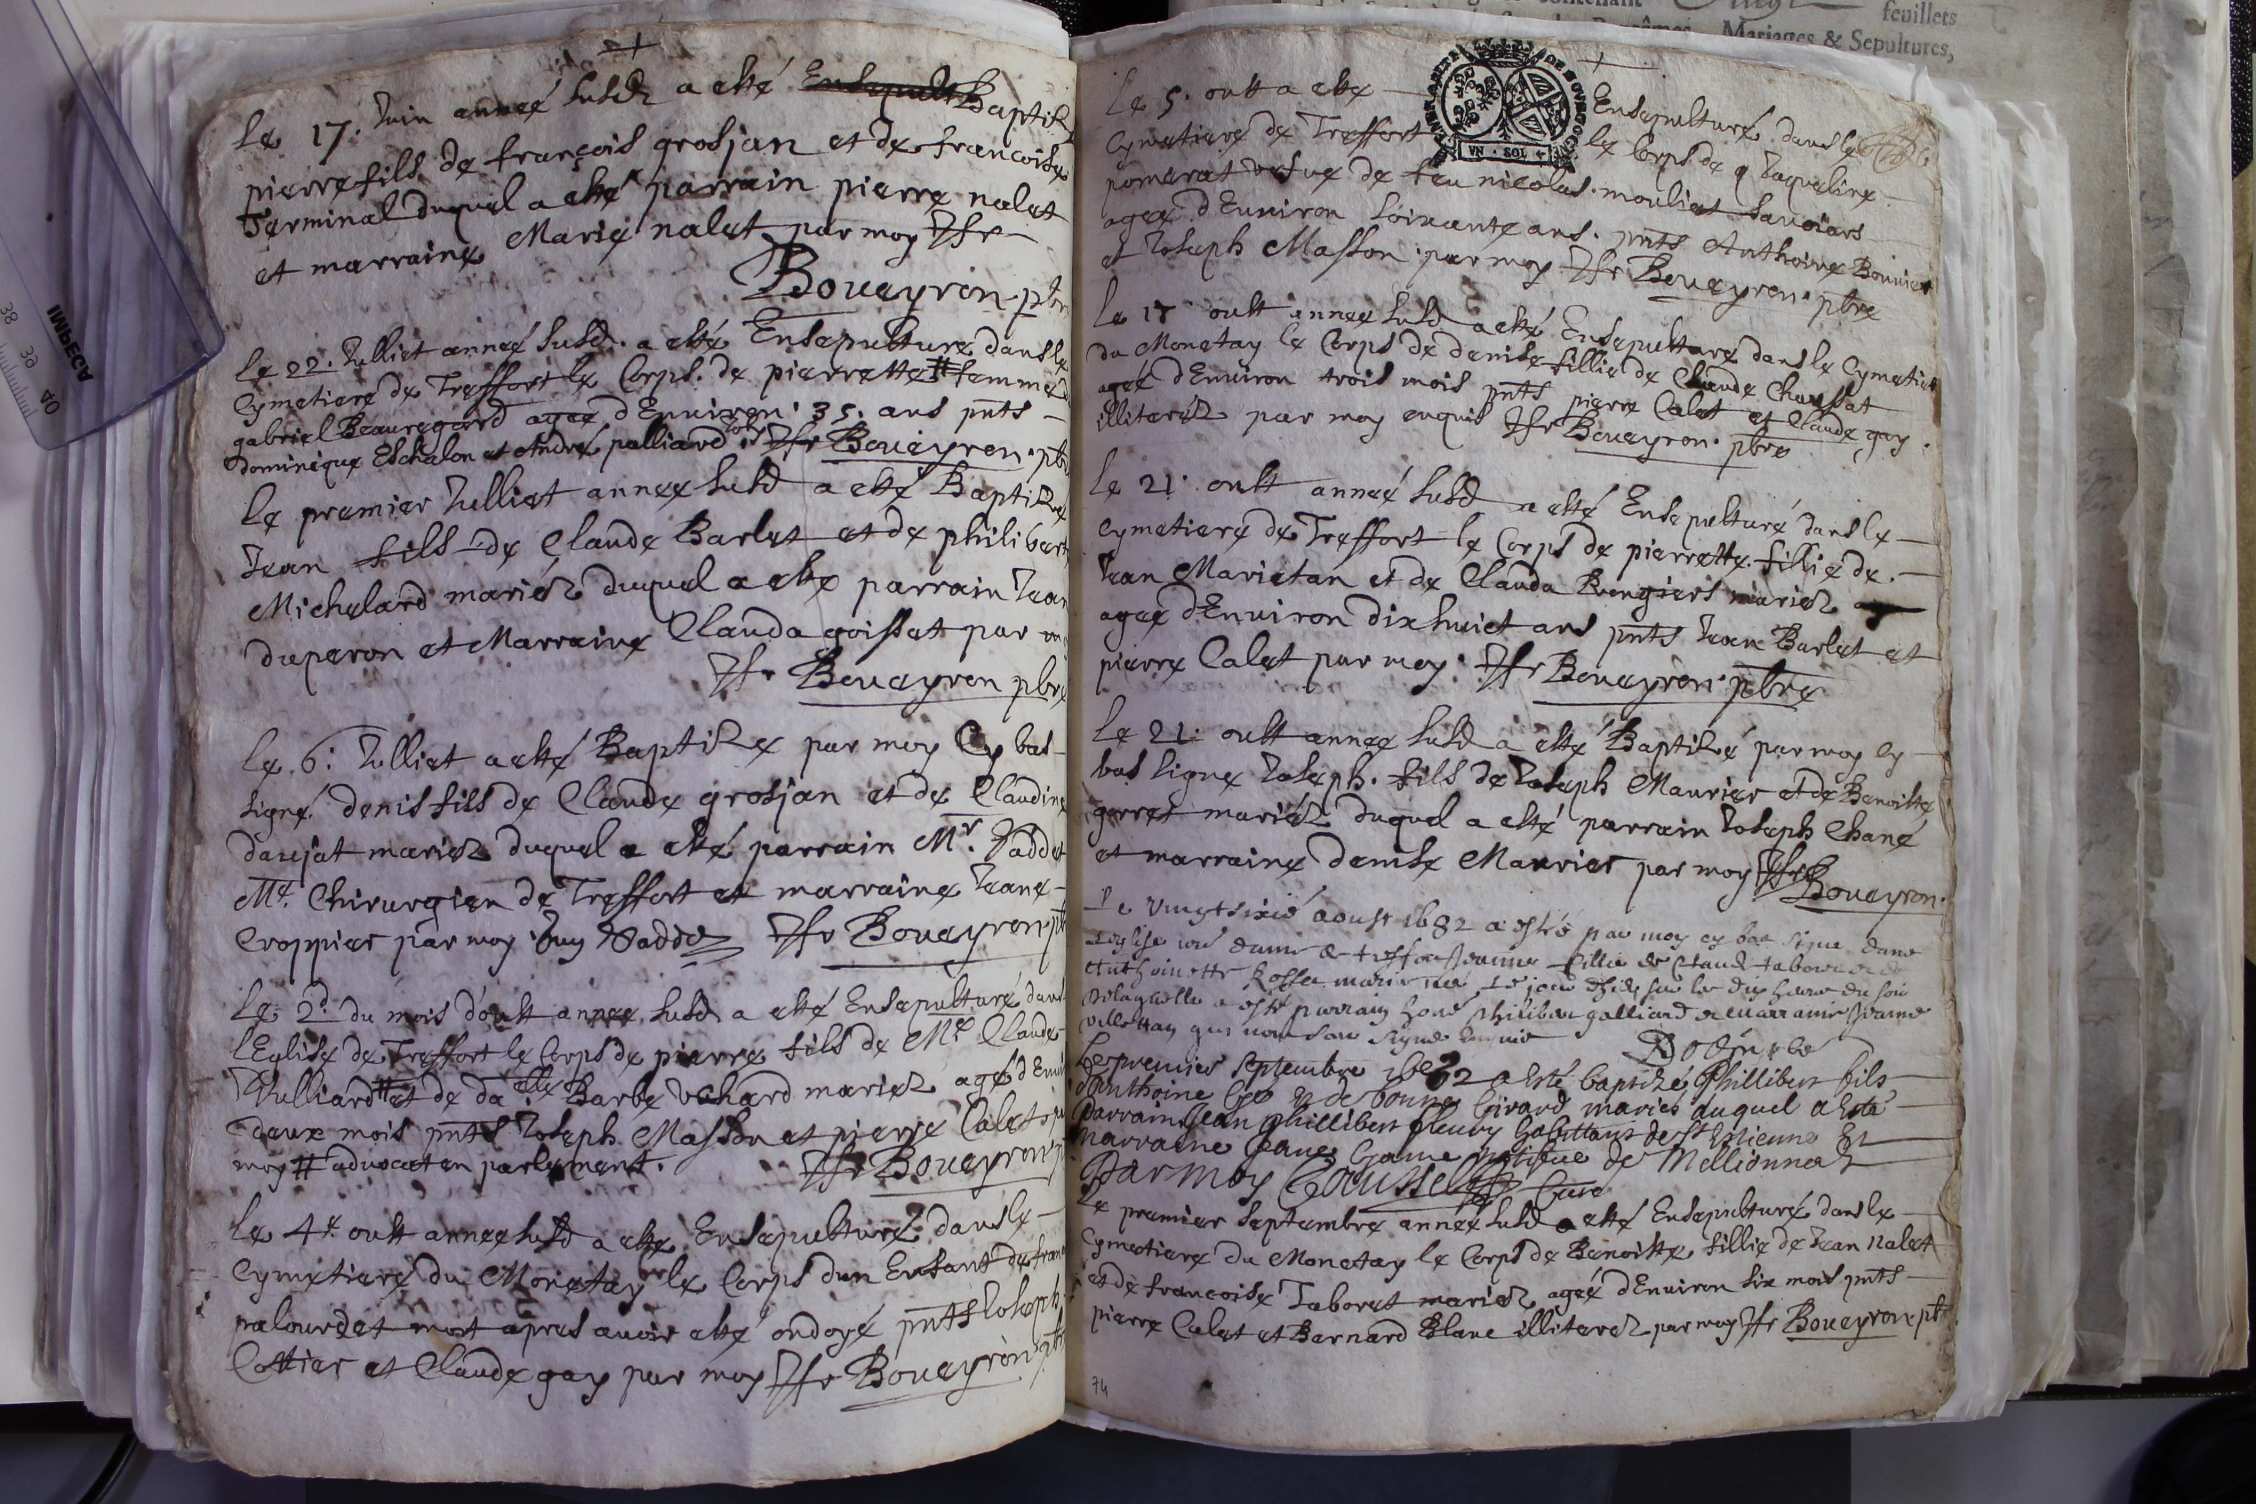 Le 17. Juin anneé susd a esté Ensepult Baptisé
pierre fils de françois grosjan et de francoise
Terminal duquel a esté parrain pierre nalet
et marraine Marie nalet par moy
Boueyron pbre
Le 22. Julliet anneé susd. a esté Ensepulturé dans le
Cymetiere de Treffort le Corps de pierrette # femme de
gabriel Beauregard agee d'Environ 35. ans pnts
dominique Eschalon et André palliard Boueyron pbre
Le premier Julliet anneé susd a esté Baptizé
Jean fils de Claude Barlet et de philiberte
Michelard mariéz duquel a esté parrain Jean
duperon et Marraine Clauda goissat par moy
Boueyron pbre
Le 6. Julliet a esté Baptize par moy Cy bas
signé denis fils de Claude grosjan et de Claudine
daujat mariez duquel a esté parrain Mr. Vaddet
Mre. Chirurgien de Treffort et marraine Jeane
Croppier par moy Boueyron pbre
Le 2d. du mois d'oult anneé susd a esté Ensepulturé dans
l'Eglise de Treffort le Corps de pierre fils de Me Claude
Vulliard # et de dalle Barbe Vohard mariez agé d'Environ
deux mois pnts Joseph Masson et pierre Calet par
moy # advocat en parlement. Boueyron
Le 4e. oult anneé susd a esté Ensepulturé dans le
Cymetiere du Monetay le Corps d'un Enfant de
palourdet mort apres avoir esté ondoyé pnts Joseph
Cottier et Claude gay par moy Boueyron pbre
Le 5. oult a esté Ensepulturé dans le
Cymetiere de Treffort le Corps de Jaqueline
pomerat vefve de feu nicolas mouliat savoiard
ageé d'Environ soixante ans. pnts Anthoine Bonnier
et Joseph Masson par moy Boueyron pbre
VN · SOL
Le 17 oult anneé susd a esté Ensepulturé dans le Cymetiere
du Monetay le Corps de denise fillie de Claude Chaussat
ageé d'Environ trois mois pnts pierre Calet et Claude gay
illiteréz par moy enquis Boueyron pbre
Le 21. oult anneé susd a esté Ensepulturé dans le
Cymetiere de Treffort le Corps de pierrette fillie de
Jean Marietan et de Clauda mariez
ageé d'Environ dix huict ans pnts Jean Barlet et
pierre Calet par moy Boueyron pbre
Le 21. oult anneé susd a esté Baptizé par moy cy
bas signé Joseph fils de Joseph Maurier et de Benoitte
gorret mariéz duquel a esté parrain Joseph Chané
et marraine denise Maurier par moy
Boueyron
Le vingt sixie aoust 1682 a esté par moy cy bas signe dans
leglise dame de treffort Jeanne fillie de Claude tabouret et de
Anthoinette Rosset mariés née le jour d'hier sur les dix heure du soir
de laquelle a esté parrain honé philibert galliard et marraine Jeanne
villettan qui nont sceu signer enquis
Bodin pbre
Le premier Septembre 1682 a Esté baptizé Phillibert fils
d'anthoine Geo et de bonne Girard mariés duquel a Esté
Parrain Jean Phillibert fleury habittant de St Estienne Et
Marraine Jeane Game de Meillonnaz
Par moy Gausselle Curé
Le premier Septembre anneé susd a esté Ensepulturé dans le
Cymetiere du Monetay le Corps de Benoitte fillie de Jean nalet
et de francoise Taboret mariéz ageé d'Environ six mois pnts
pierre Calet et Bernard Blanc illiterez par moy Boueyron pbre
74
feuillets
Mariages & Sepultures,
38
39
40